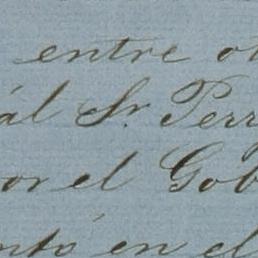 entre ot
ál Sr. Perr
or el Gob
nto en el